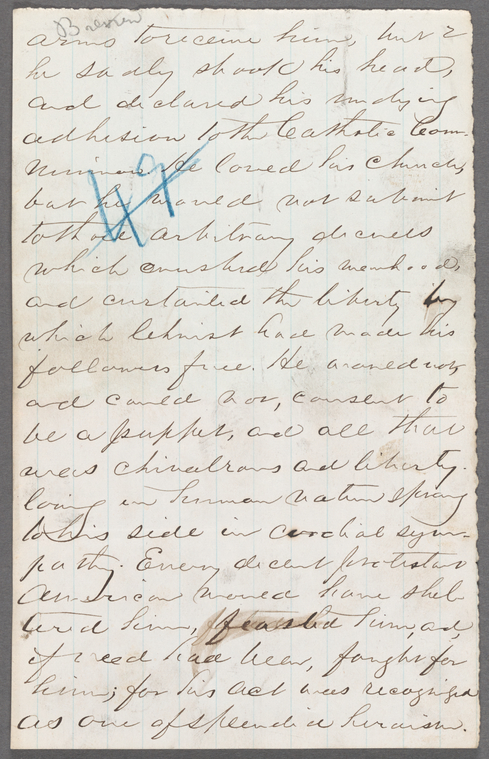 Brevien
arms to receive him, but
he sadly shook his head,
and declared his undying
adhesion to the Catholic Com-
munion. He loved his church,
but he would not submit
to those arbitrary decrees
which crushed his manhood,
and curtailed the liberty by
which Christ had made his
followers free. He would not,
and could not, consent to
be a puppet, and all that
was chivalrous and liberty-
loving in human nature sprang
to his side in cordial sym-
pathy. Every decent protestant
American would have shel-
tered him, feasted him, and,
if need had been, fought for
him; for his act was recognized
as one of splendid heroism.
49